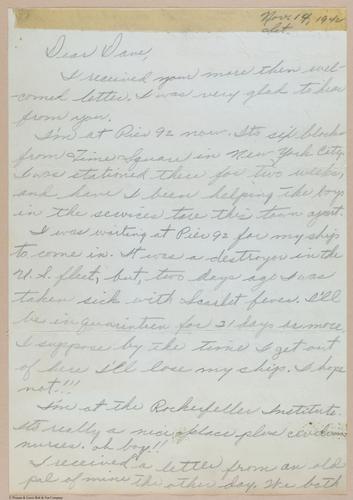 Nov. 14, 1942
Sat.
Dear Dave,
I received your more then wel-
comed letter. I was very glad to hear
from you.
I'm at Pier 92 now. Its six blocks
from Time Square in New York City.
I was stationed there for two weeks,
and have I been helping the boys
in the services tare this town apart.
I was waiting at Pier 92 for my ship
to come in. It was a destroyer in the
U. S. fleet, but, two days ago I was
taken sick with Scarlet fever. I'll
be in quarinteen for 21 days or more
I suppose by the time I get out
of here I'll lose my ship. I hope
not!!!
I'm at the Rockerfeller Institute.
Its really a nice place plus civilian
nurses. oh boy!!
I received a letter from an old
pal of mine the other day. We both